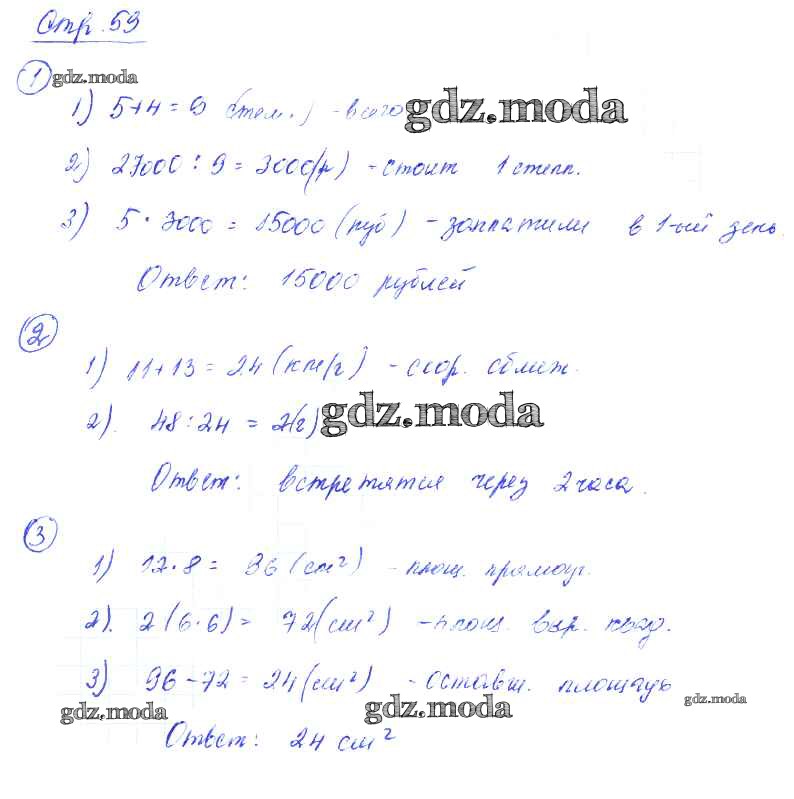 Стр. 59
1 gdz.moda
1) 5+4=9 (тел.) - всего gdz.moda
2) 27000 : 9 = 3000(р) - стоит 1 степл.
3) 5 · 3000 = 15000 (руб) - заплатили в 1-ый день.
Ответ: 15000 рублей
2
1) 11+13 = 24 (км/г) - скор. сближ.
2). 48:24 = 2(г) gdz.moda
Ответ: встретятся через 2 часа.
3
1) 12·8 = 96 (см²) - площ. прямоуг.
2). 2(6·6) = 72(см²) - площ. выр. квад.
3) 96-72=24(см²) - оставш. площадь
gdz.moda gdz.moda gdz.moda
Ответ: 24 см²